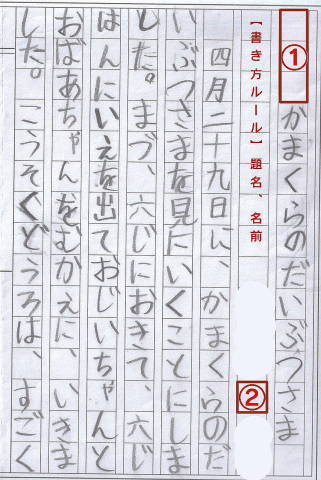 ①かまくらのだいぶつさま
【書き方ルール】題名、名前
②
四月二十九日に、かまくらのだ
いぶつさまを見にいくことにしま
した。まづ、六じにおきて、六じ
はんにいえを出ておじいちゃんと
おばあちゃんをむかえに、いきま
した。こうそくどうろは、すごく